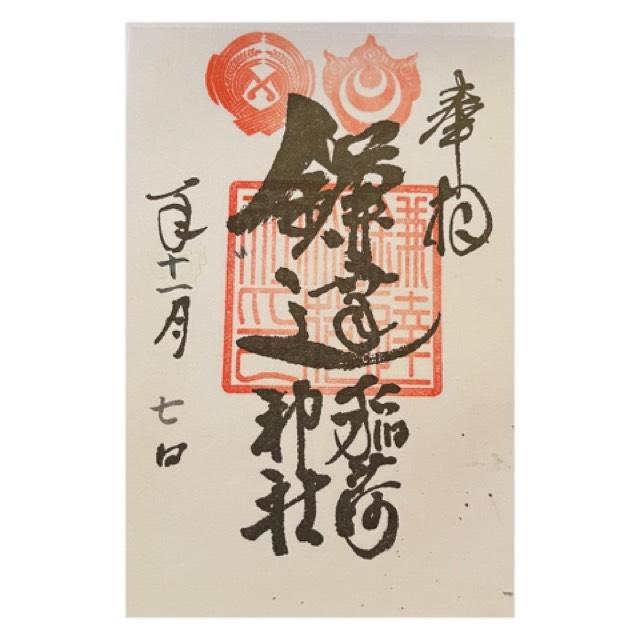 奉拝
鎌達
稲荷
神社
年十一月七日